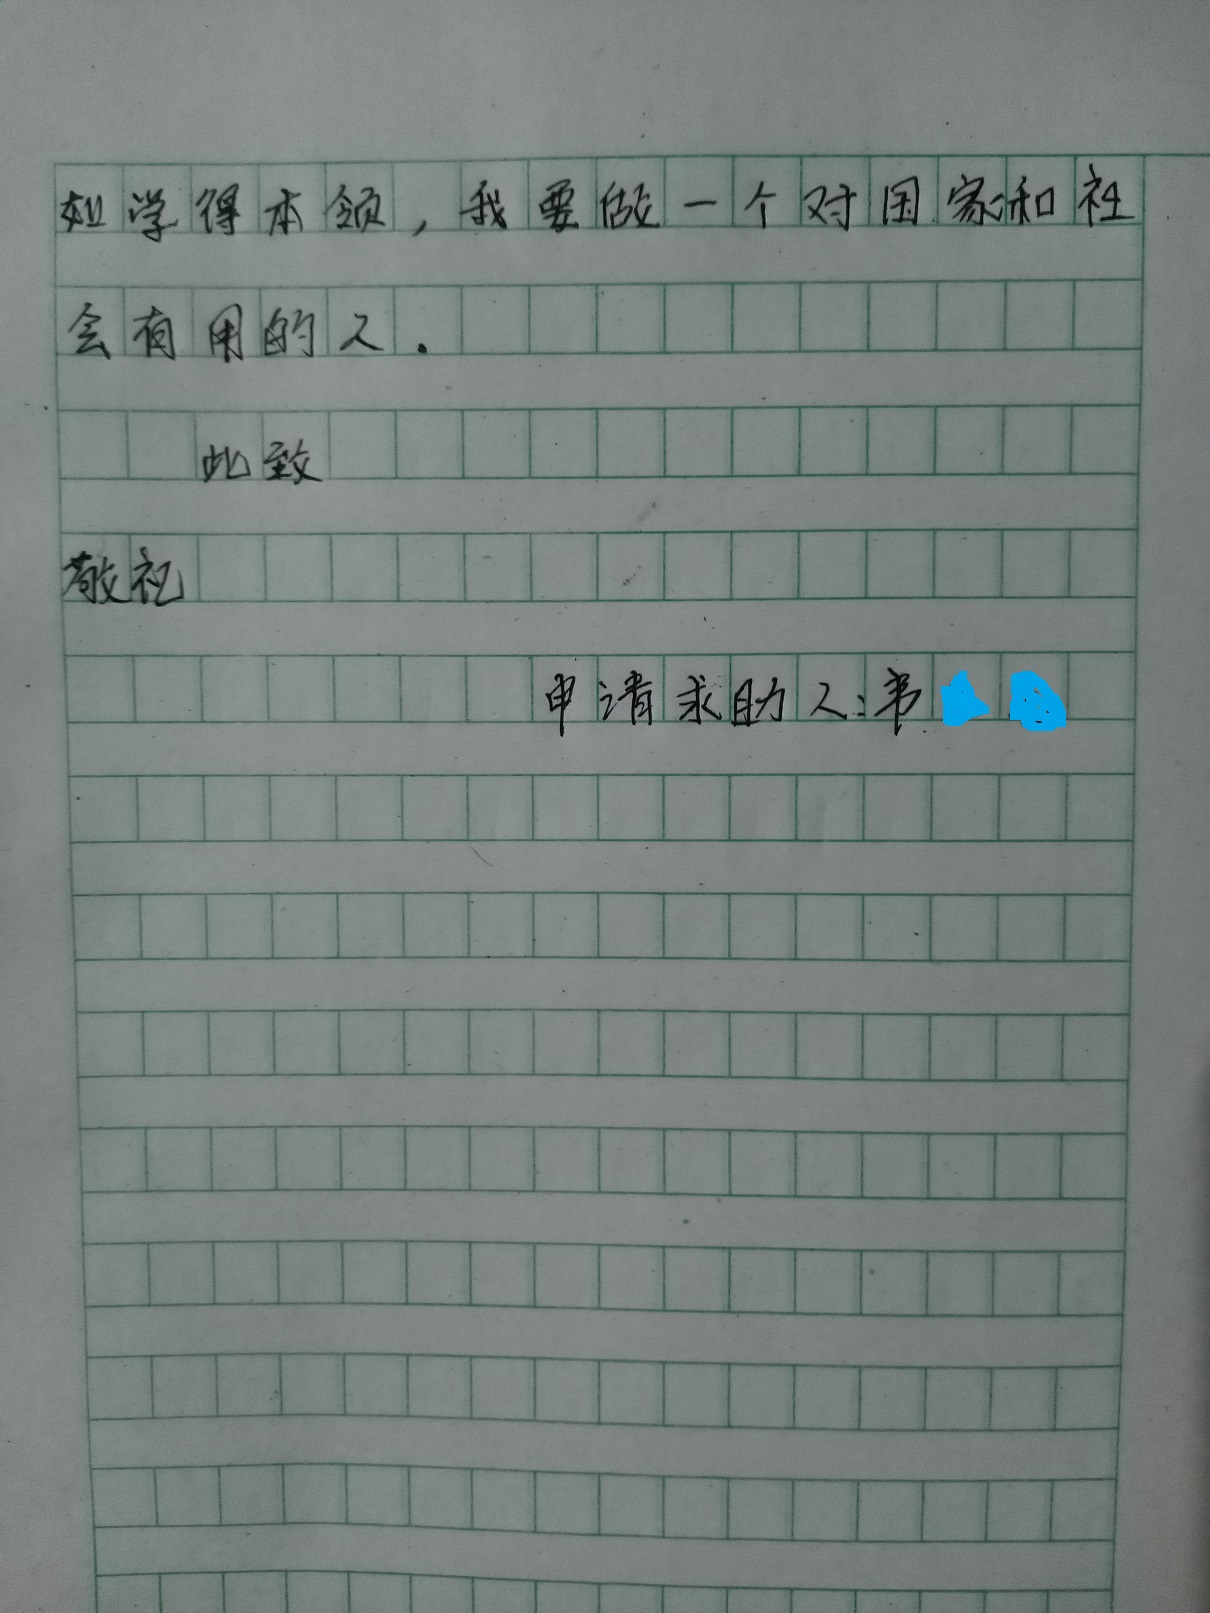 如学得本领，我要做一个对国家和社
会有用的人.
此致
敬礼
申请求助人:韦